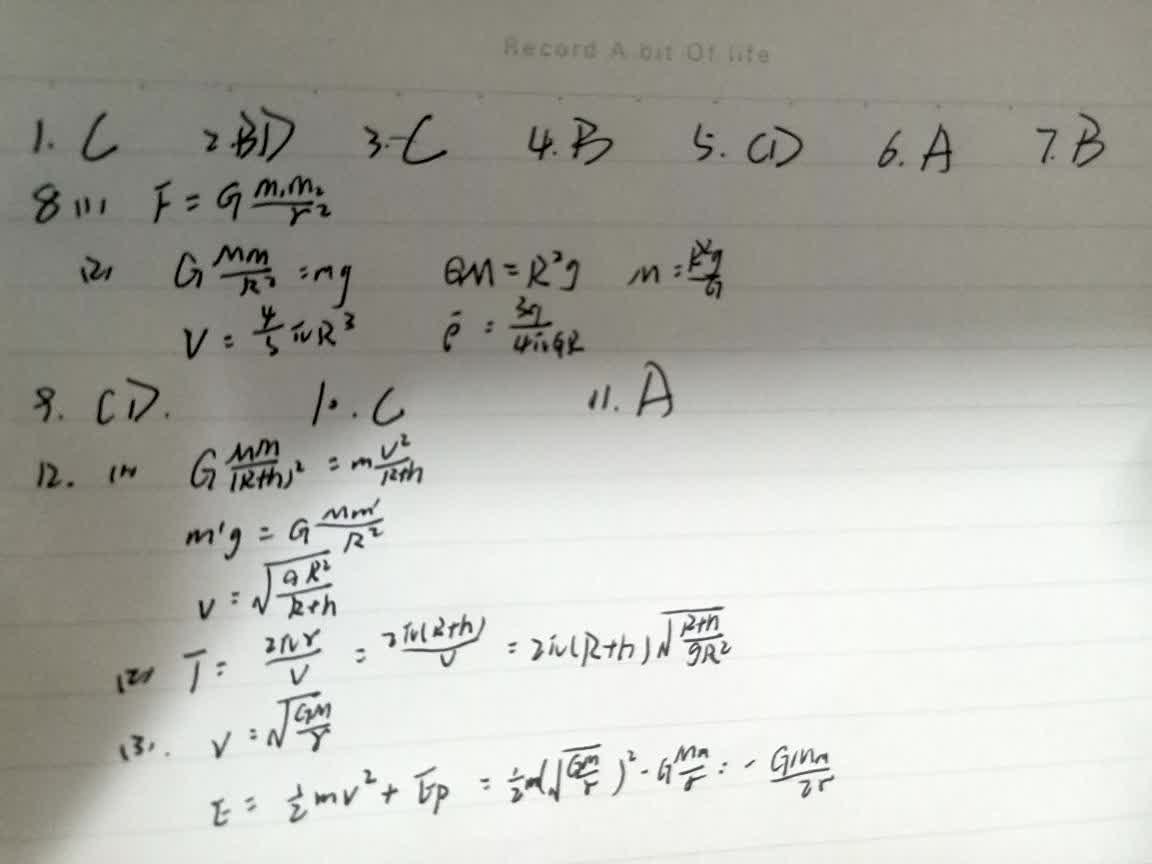 Record A bit Of life
1. C 2. BD 3. C 4. B 5. CD 6. A 7. B
8 (1) F = G m₁m₂/r²
(2) G Mm/R² = mg GM = R²g M = R²g/G
V = 4/3 πR³ ρ = 3g/4πGR
9. CD. 10. C 11. A
12. (1) G Mm/(R+h)² = m v²/R+h
m'g = G Mm'/R²
v = √(gR²/R+h)
(2) T = 2πr/v = 2π(R+h)/v = 2π(R+h)√(R+h/gR²)
(3). v = √(GM/r)
E = ½mv² + Ep = ½m(√(GM/r))² - G Mm/r = - GMm/2r